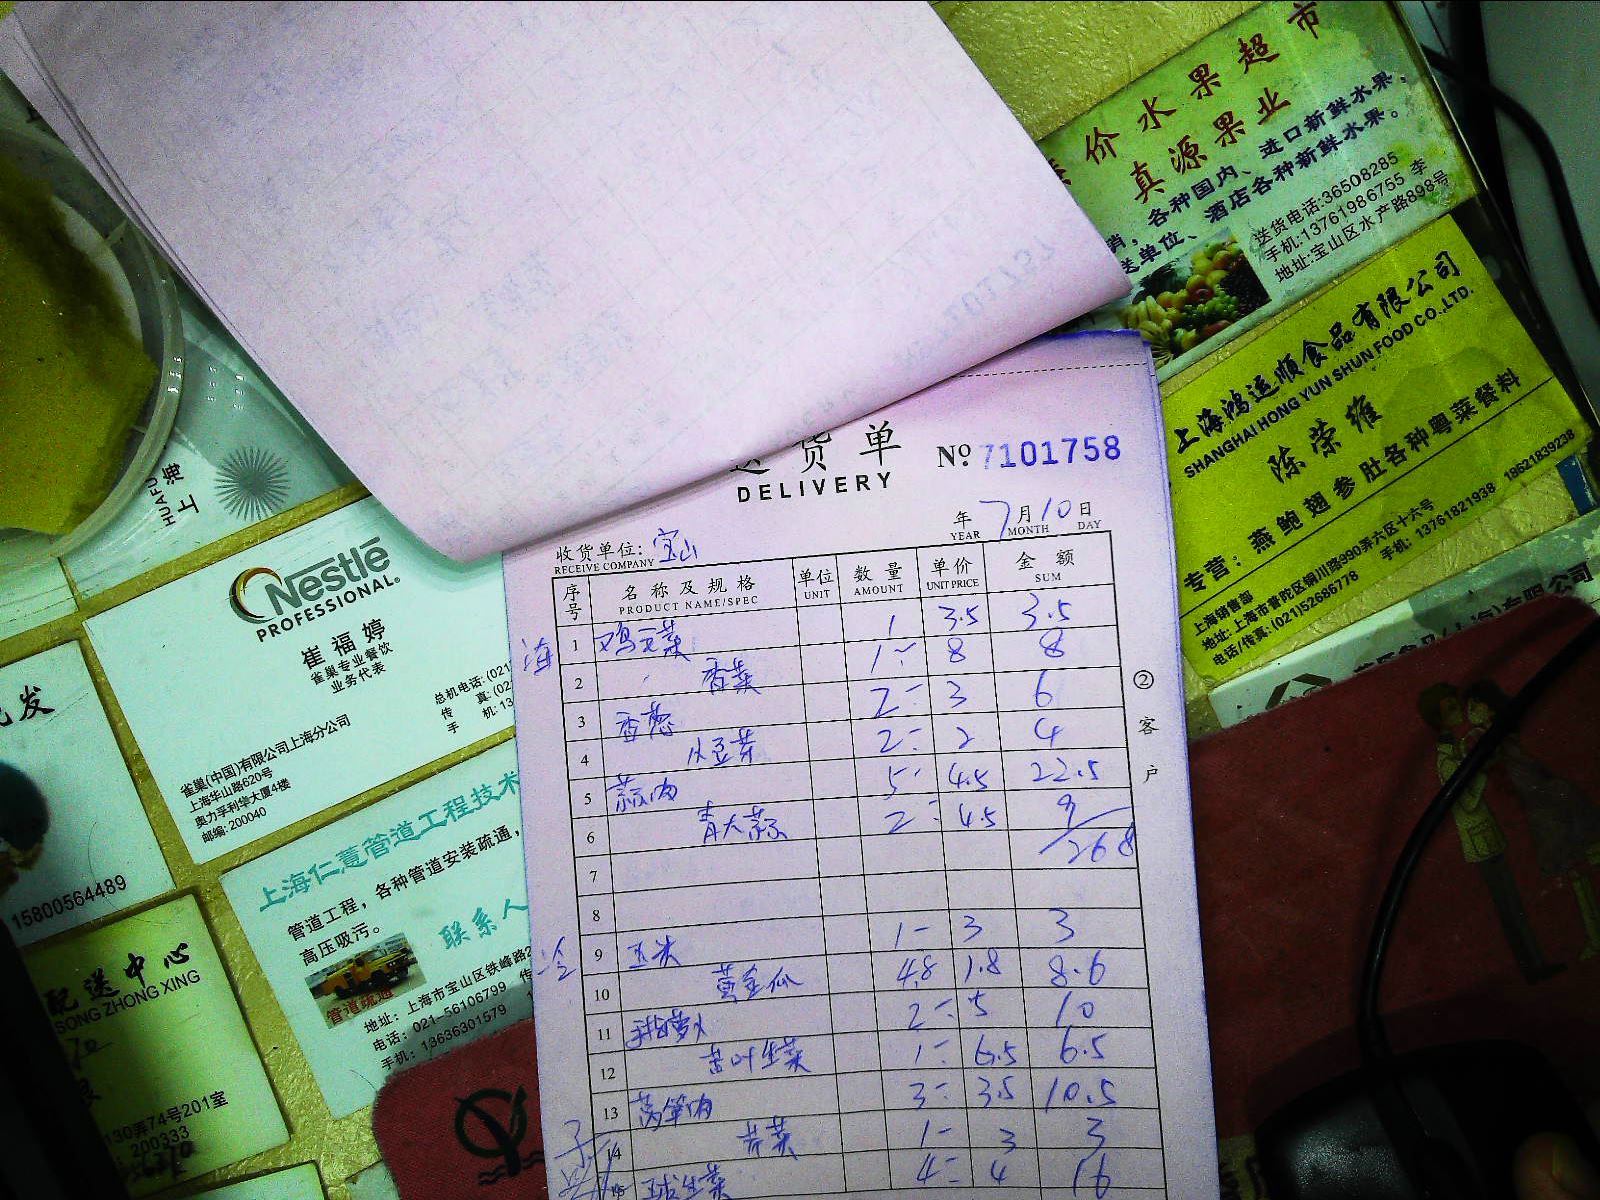 市
价水果超
真源果业
各种国内、进口新鲜水果，
送单位、酒店各种新鲜水果。
送货电话:36508285
手机:13761986755 李
地址:宝山区水产路898号
上海鸿运顺食品有限公司
SHANGHAI HONG YUN SHUN FOOD CO.,LTD.
陈荣维
专营：燕鲍翅参肚各种粤菜餐料
上海销售部
地址: 上海市普陀区铜川路990弄六区十六号
电话/传真: (021)52686778 手机: 13761821938 18621839238
HUAFU
上海
Nestlé
PROFESSIONAL®
崔福婷
雀巢专业餐饮
业务代表
总机电话: (021
传 真: (02
手 机: 13
雀巢(中国)有限公司上海分公司
上海华山路620号
奥力孚利华大厦4楼
邮编: 200040
上海仁薏管道工程技术
管道工程，各种管道安装疏通，
高压吸污。
联系人
管道疏通
地址：上海市宝山区铁峰路2
电话：021-56106799 传
手机：13636301579
发
15800564489
配送中心
SONG ZHONG XING
130弄74号201室
200333
送货单 No 7101758
DELIVERY
年 7月10日
YEAR MONTH DAY
收货单位: 宝山
RECEIVE COMPANY
序号 名称及规格 单位 数量 单价 金额
PRODUCT NAME/SPEC UNIT AMOUNT UNIT PRICE SUM
海 1 鸡毛菜 1 3.5 3.5
2 香菜 1- 8 8
3 香葱 2- 3 6
4 豆芽 2- 2 4
5 蒜肉 5- 4.5 22.5
6 青大蒜 2- 4.5 9
7 268
8
冷 9 玉米 1- 3 3
10 黄金瓜 4.8 1.8 8.6
11 萝卜 2- 5 10
12 苦叶生菜 1- 6.5 6.5
13 莴笋肉 3- 3.5 10.5
14 芹菜 1- 3 3
15 球生菜 4- 4 16
②客户